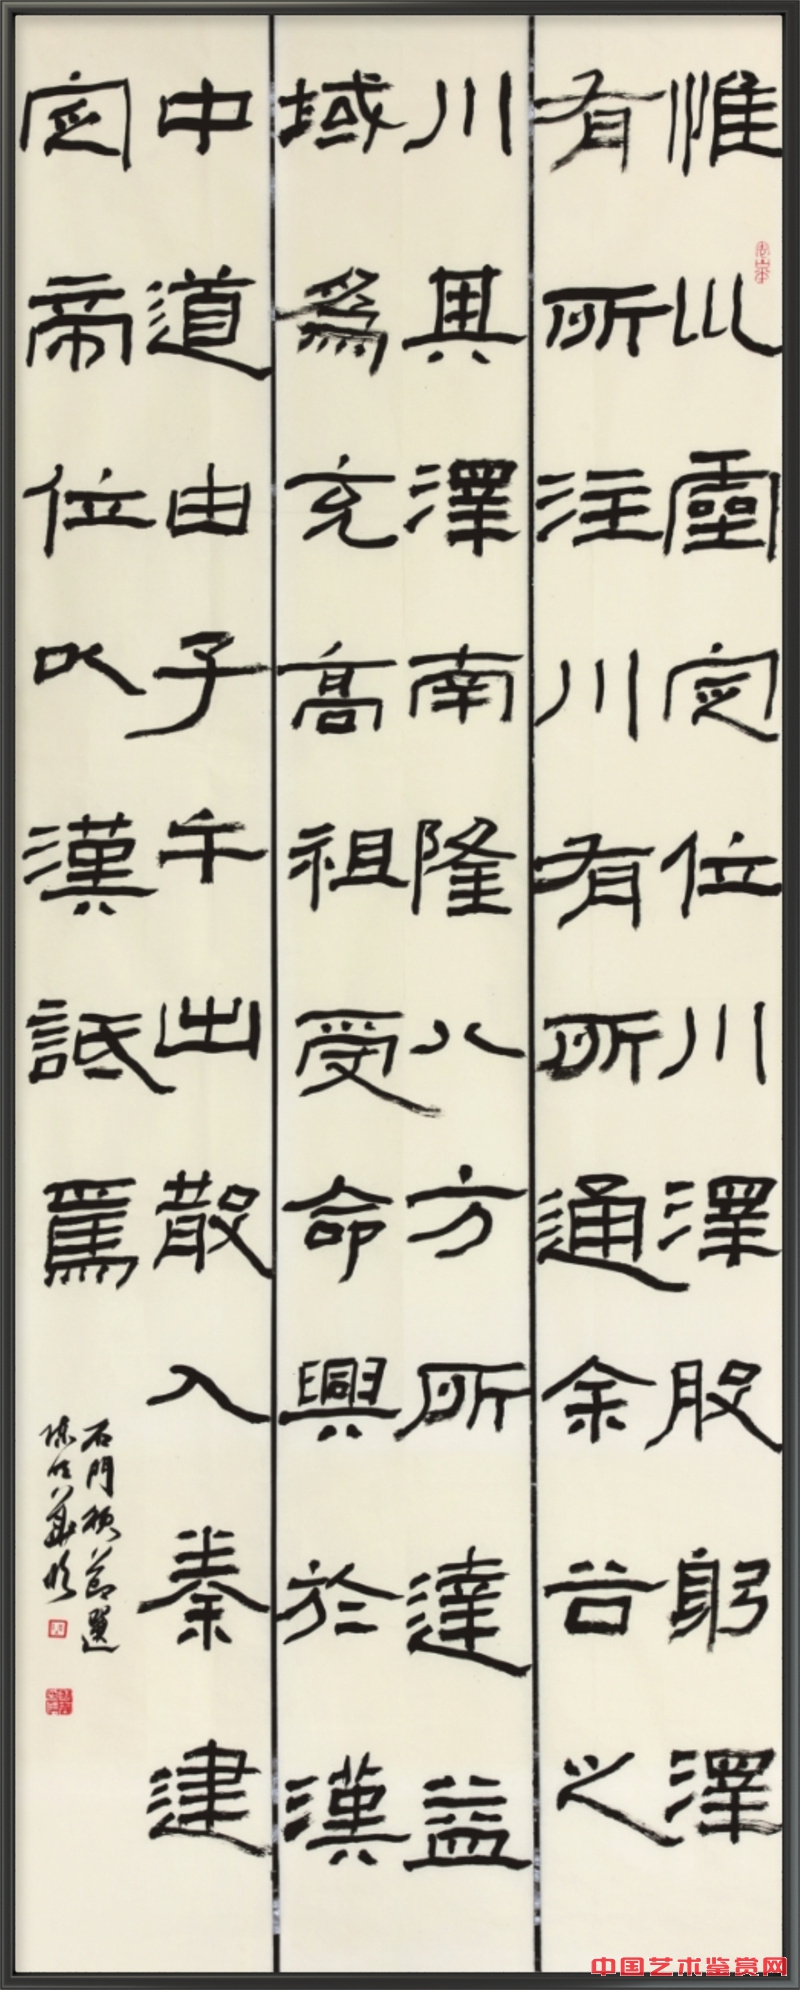 惟巛靈定位川澤股躬澤
有所注川有所通余谷之
川其澤南隆八方所達益
域爲充高祖受命興於漢
中道由子午出散入秦建
定帝位以漢詆焉
石門頌節選
中国艺术鉴赏网